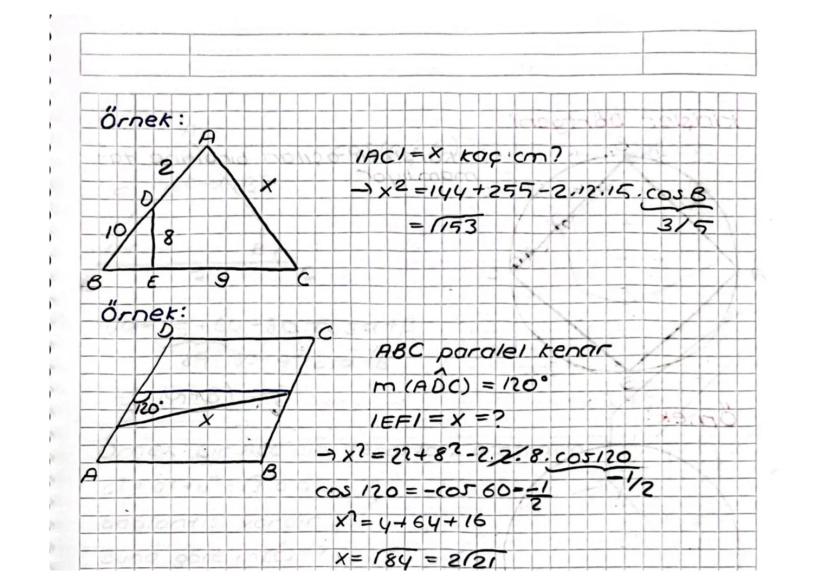 Örnek:
A
2
x
D
10
8
B
E
9
C
|AC|=x kaç cm?
→x²=144+255-2.12.15.cosB
3/5
=√153
Örnek:
D
C
120°
x
A
B
ABC paralel kenar
m(ADC)=120°
|EF|=x=?
→x²=2²+8²-2.2.8.cos120
-1/2
cos 120=-cos 60=-1/2
x²=4+64+16
x=√84=2√21